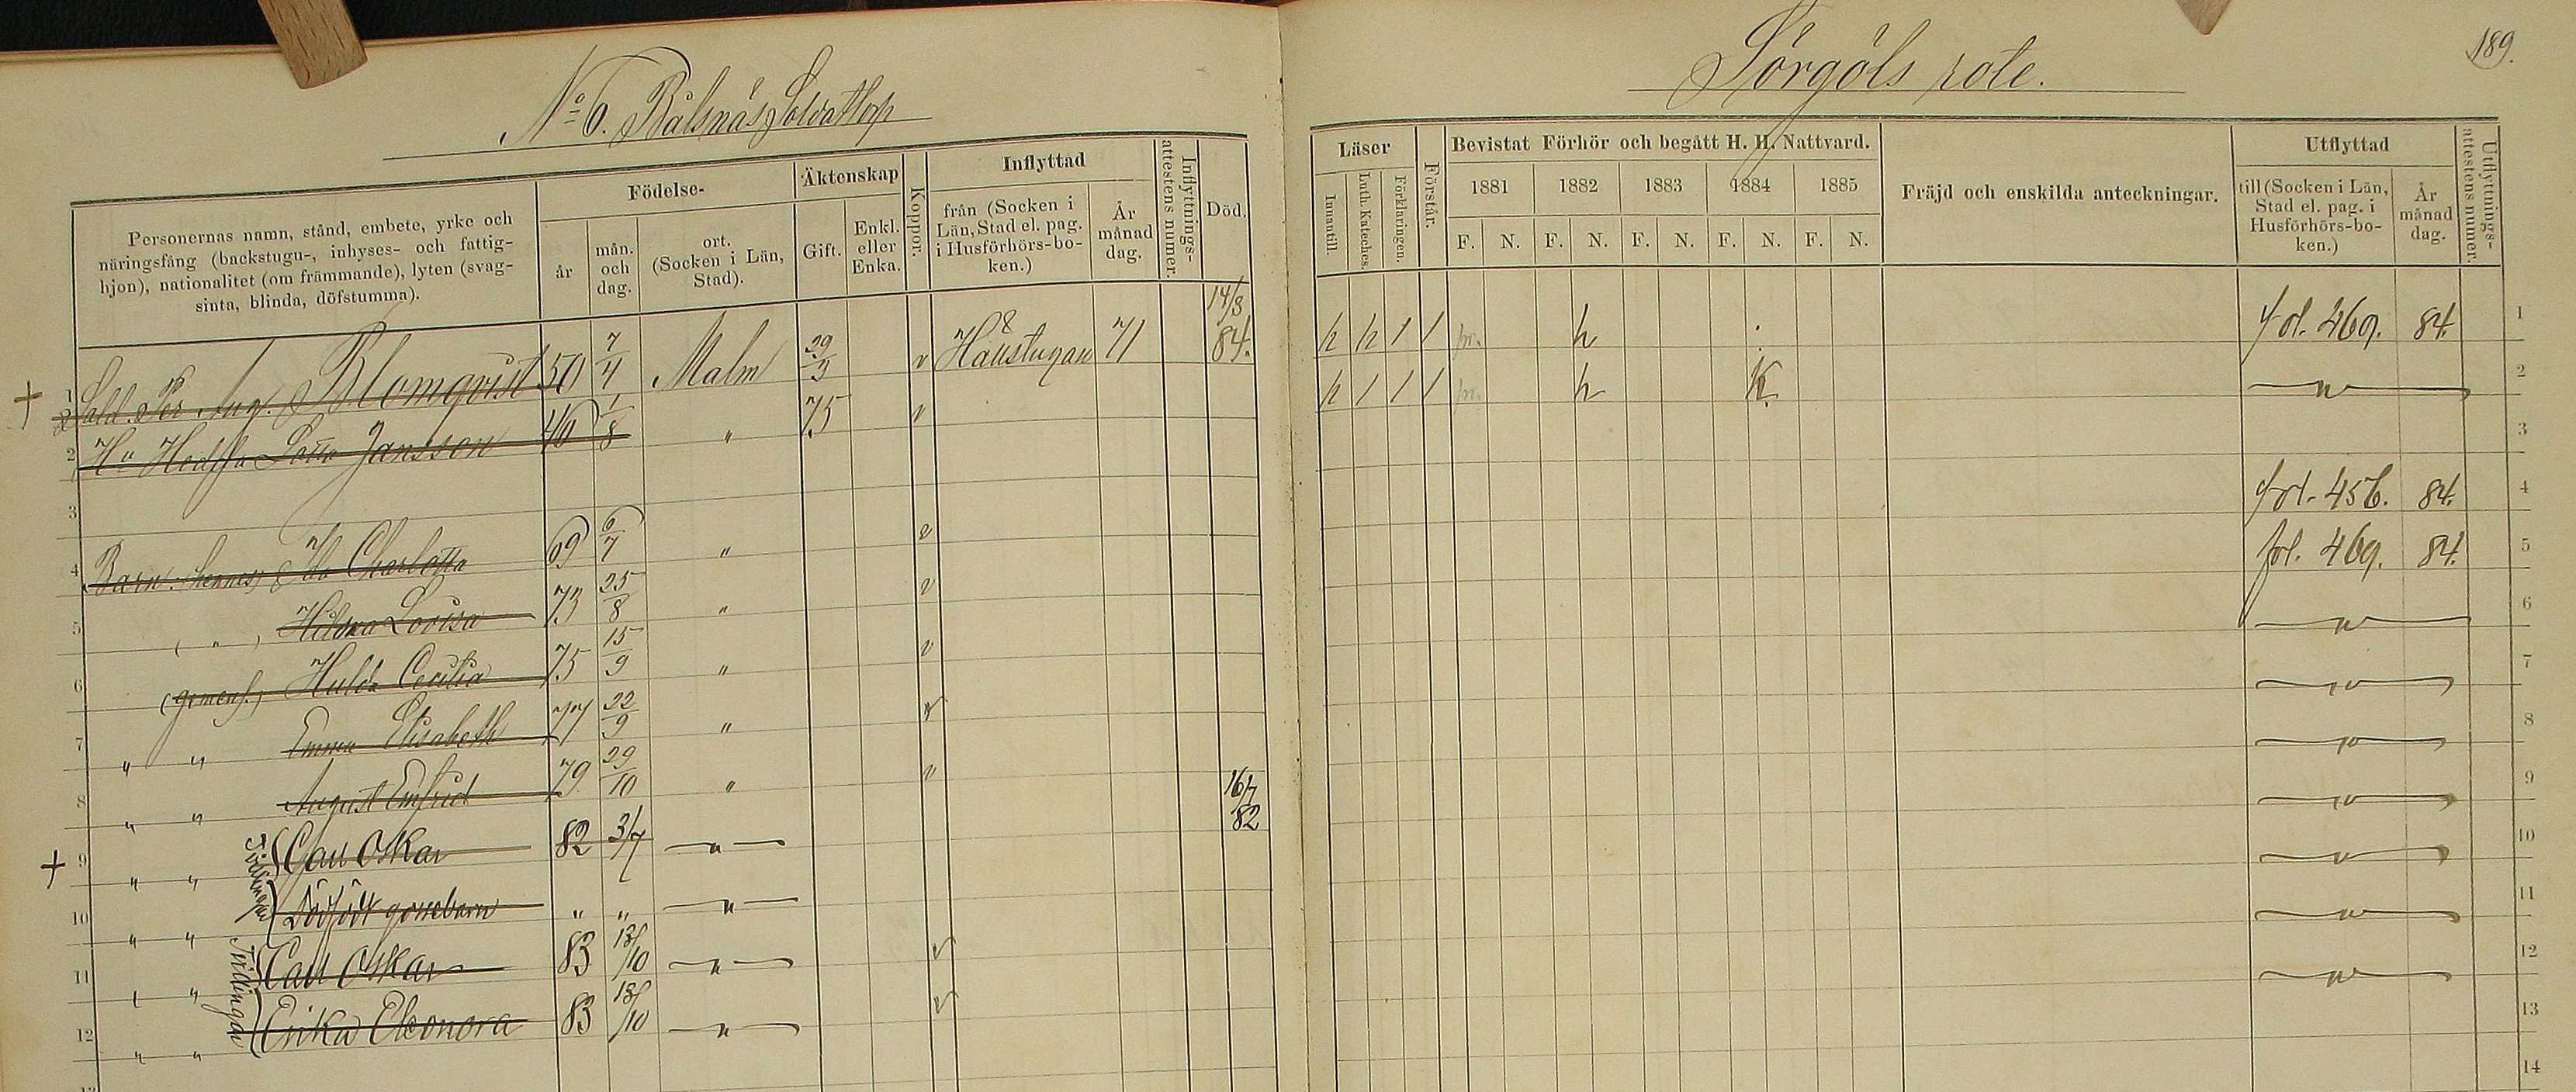 No 6. Bålsnäs Soldattorp
Sörgöls rote.
189.
Personernas namn, stånd, embete, yrke och
näringsfång (backstugu-, inhyses- och fattig-
hjon), nationalitet (om främmande), lyten (svag-
sinta, blinda, döfstumma).
Födelse-
år
mån.
och
dag.
ort.
(Socken i Län,
Stad).
Äktenskap
Gift.
Enkl.
eller
Enka.
Koppor.
Inflyttad
från (Socken i
Län, Stad el. pag.
i Husförhörs-bo-
ken.)
År
månad
dag.
Inflyttnings-
attestens numer.
Död.
Läser
Innantill.
Luth. Kateches.
Förklaringen.
Förstår.
Bevistat Förhör och begått H. H. Nattvard.
1881 1882 1883 1884 1885
F. N. F. N. F. N. F. N. F. N.
Fräjd och enskilda anteckningar.
Utflyttad
till (Socken i Län,
Stad el. pag. i
Husförhörs-bo-
ken.)
År
månad
dag.
Utflyttnings-
attestens numer.
1 Sold. Per Aug. Blomqvist 50 7/4 Malm 29/3 v Häustugan 71 14/3 84. fol. 469. 84. 1
2 Hu Hedda Lotta Jansson 46 1/8 " 75 v " 2
3 3
4 Barn: hennes) Ida Charlotta 69 6/7 " v fol. 456. 84. 4
5 ( " ) Hilda Lovisa 73 25/8 " v fol. 469. 84. 5
6 (gemens.) Hulda Cecilia 75 15/9 " v " 6
7 " " Emma Elisabeth 77 22/9 " v " 7
8 " " August Enfrid 79 29/10 " v " 8
9 " " Tvillingar Carl Oskar 82 3/7 " 16/7 82 " 9
10 " " Dödfödt gossebarn " " " " 10
11 " " Tvillingar Carl Oskar 83 13/10 " v " 11
12 " " Erika Eleonora 83 13/10 " v " 12
13
14